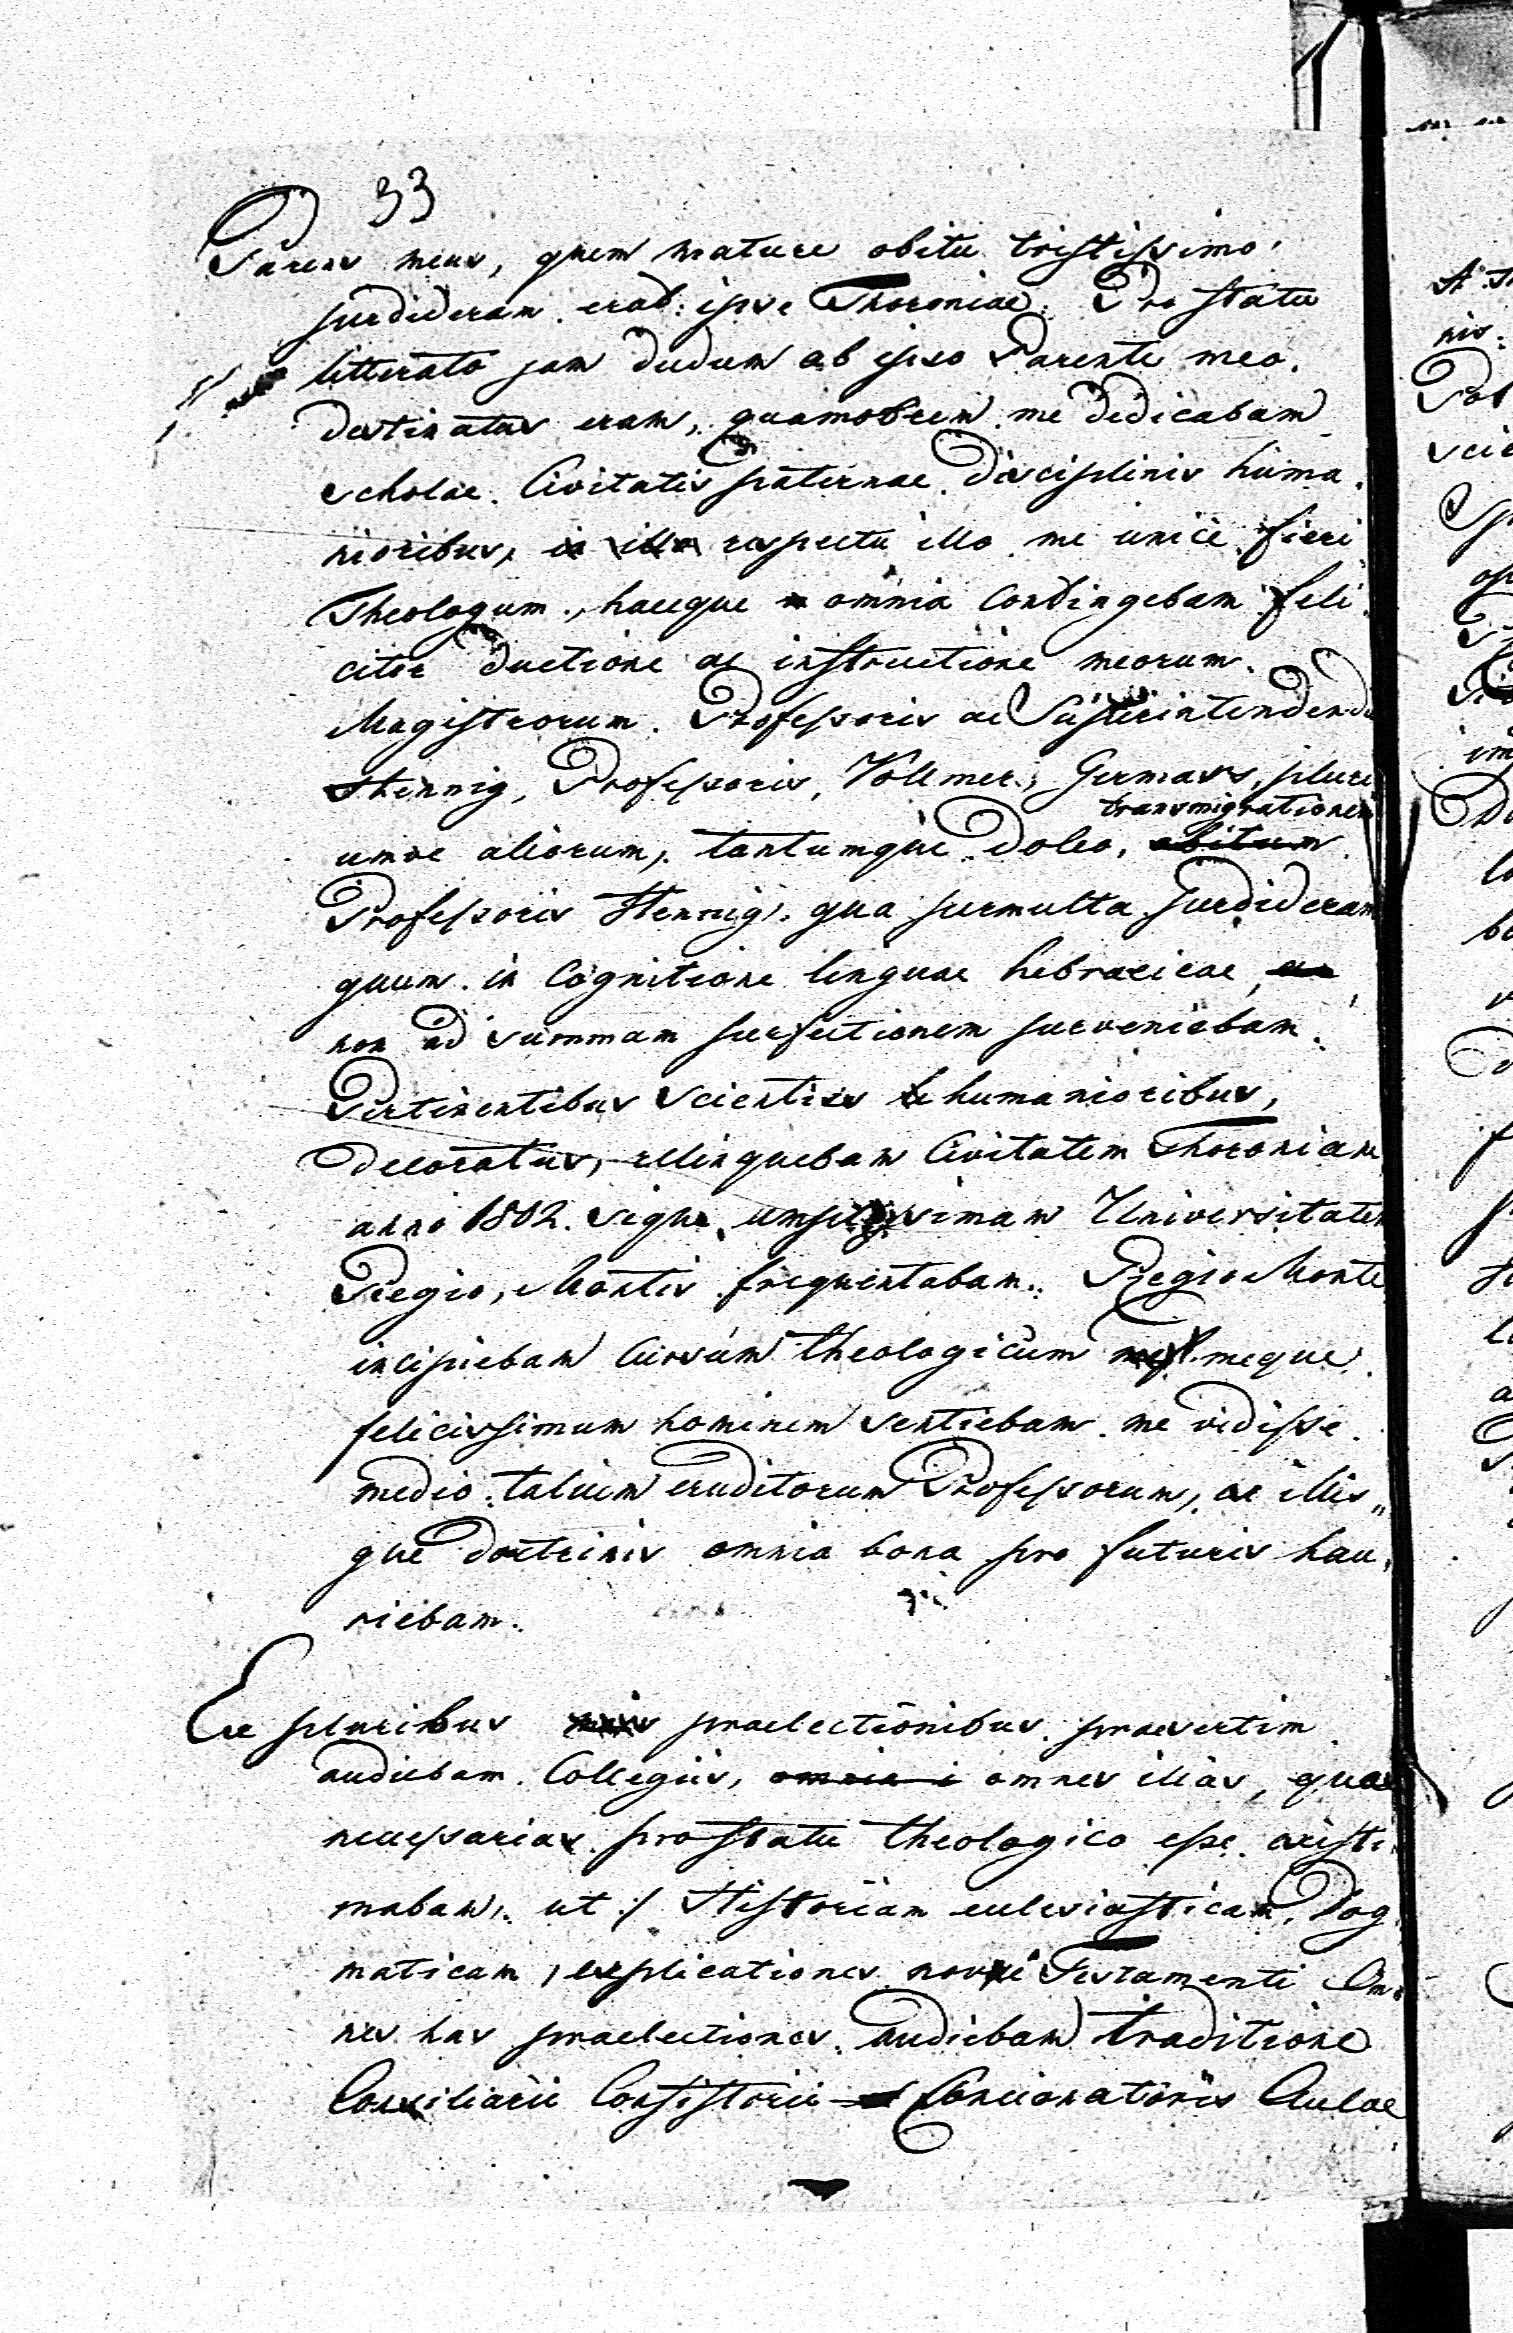 33
Parens meus, quem mature obitu tristissimo
perdideram erat ipse Thoroniae. Pro statu
litterato jam dudum ab ipso Parente meo
destinatus eram, quamobrem me dedicabam
scholae Civitatis paternae disciplinis huma
nioribus, in illo respectu illo me unice fieri
Theologum, haecque omnia contingebam feli
citer ductione ac instructione meorum
Magistrorum. Professoris ac Superintendendi
Hennig, Professoris, Vollmer, Germars, pluri
transmigrationem
umve aliorum, tantumque doleo, obitum
Professoris Hennig, qua permulta perdideram
quum in Cognitione linguae hebraeicae, 
non ad summam perfectionem perveniebam.
Pertinentibus scientiis humanioribus,
decoratus, relinquebam Civitatem Thoroniam
anno 1802. Universitatem
Regio, Montis frequentabam. Regio Monte
incipiebam Cursum theologicum meque
felicissimum hominem sentiebam me vidisse
medio talium eruditorum Professorum, ac illis„
que doctrinis omnia bona pro futuris hau,
riebam.
Ex pluribus praelectionibus praesertim
audiebam Collegiis, omnia i omnes illas, quas
necessarias pro statu theologico esse aesti
mabam, ut :/ Historiam eclesiasticam, Dog
maticam, explicationes novi Testamenti Om„
nes has praelectiones audiebam traditione
Consiliarii Consistorii Concionatoris Aulae